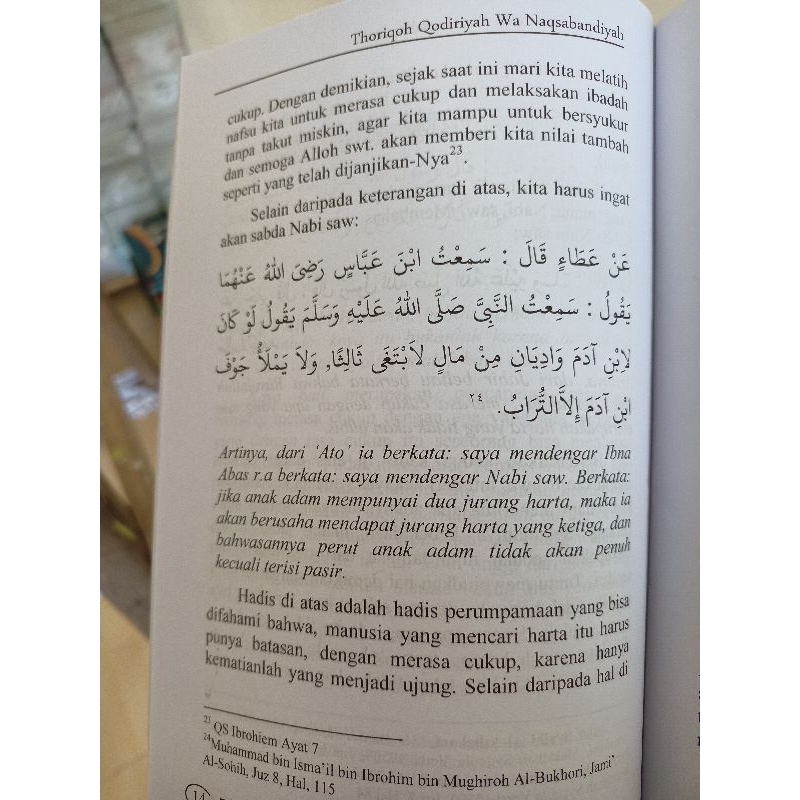 Thoriqoh Qodiriyah Wa Naqsabandiyah
cukup. Dengan demikian, sejak saat ini mari kita melatih
nafsu kita untuk merasa cukup dan melaksakan ibadah
tanpa takut miskin, agar kita mampu untuk bersyukur
dan semoga Alloh swt. akan memberi kita nilai tambah
seperti yang telah dijanjikan-Nya23.
Selain daripada keterangan di atas, kita harus ingat
akan sabda Nabi saw:
عَنْ عَطَاءٍ قَالَ : سَمِعْتُ ابْنَ عَبَّاسٍ رَضِيَ اللهُ عَنْهُمَا
يَقُولُ : سَمِعْتُ النَّبِيَّ صَلَّى اللهُ عَلَيْهِ وَسَلَّمَ يَقُولُ لَوْ كَانَ
لِابْنِ آدَمَ وَادِيَانِ مِنْ مَالٍ لاَبْتَغَى ثَالِثًا, وَلاَ يَمْلَأُ جَوْفَ
ابْنِ آدَمَ إِلاَّالتُّرَابُ. ٢٤
Artinya, dari 'Ato' ia berkata: saya mendengar Ibna
Abas r.a berkata: saya mendengar Nabi saw. Berkata:
jika anak adam mempunyai dua jurang harta, maka ia
akan berusaha mendapat jurang harta yang ketiga, dan
bahwasannya perut anak adam tidak akan penuh
kecuali terisi pasir.
Hadis di atas adalah hadis perumpamaan yang bisa
difahami bahwa, manusia yang mencari harta itu harus
punya batasan, dengan merasa cukup, karena hanya
kematianlah yang menjadi ujung. Selain daripada hal di
23 QS Ibrohiem Ayat 7
24Muhammad bin Isma'il bin Ibrohim bin Mughiroh Al-Bukhori, Jami'
Al-Sohih, Juz 8, Hal, 115
14